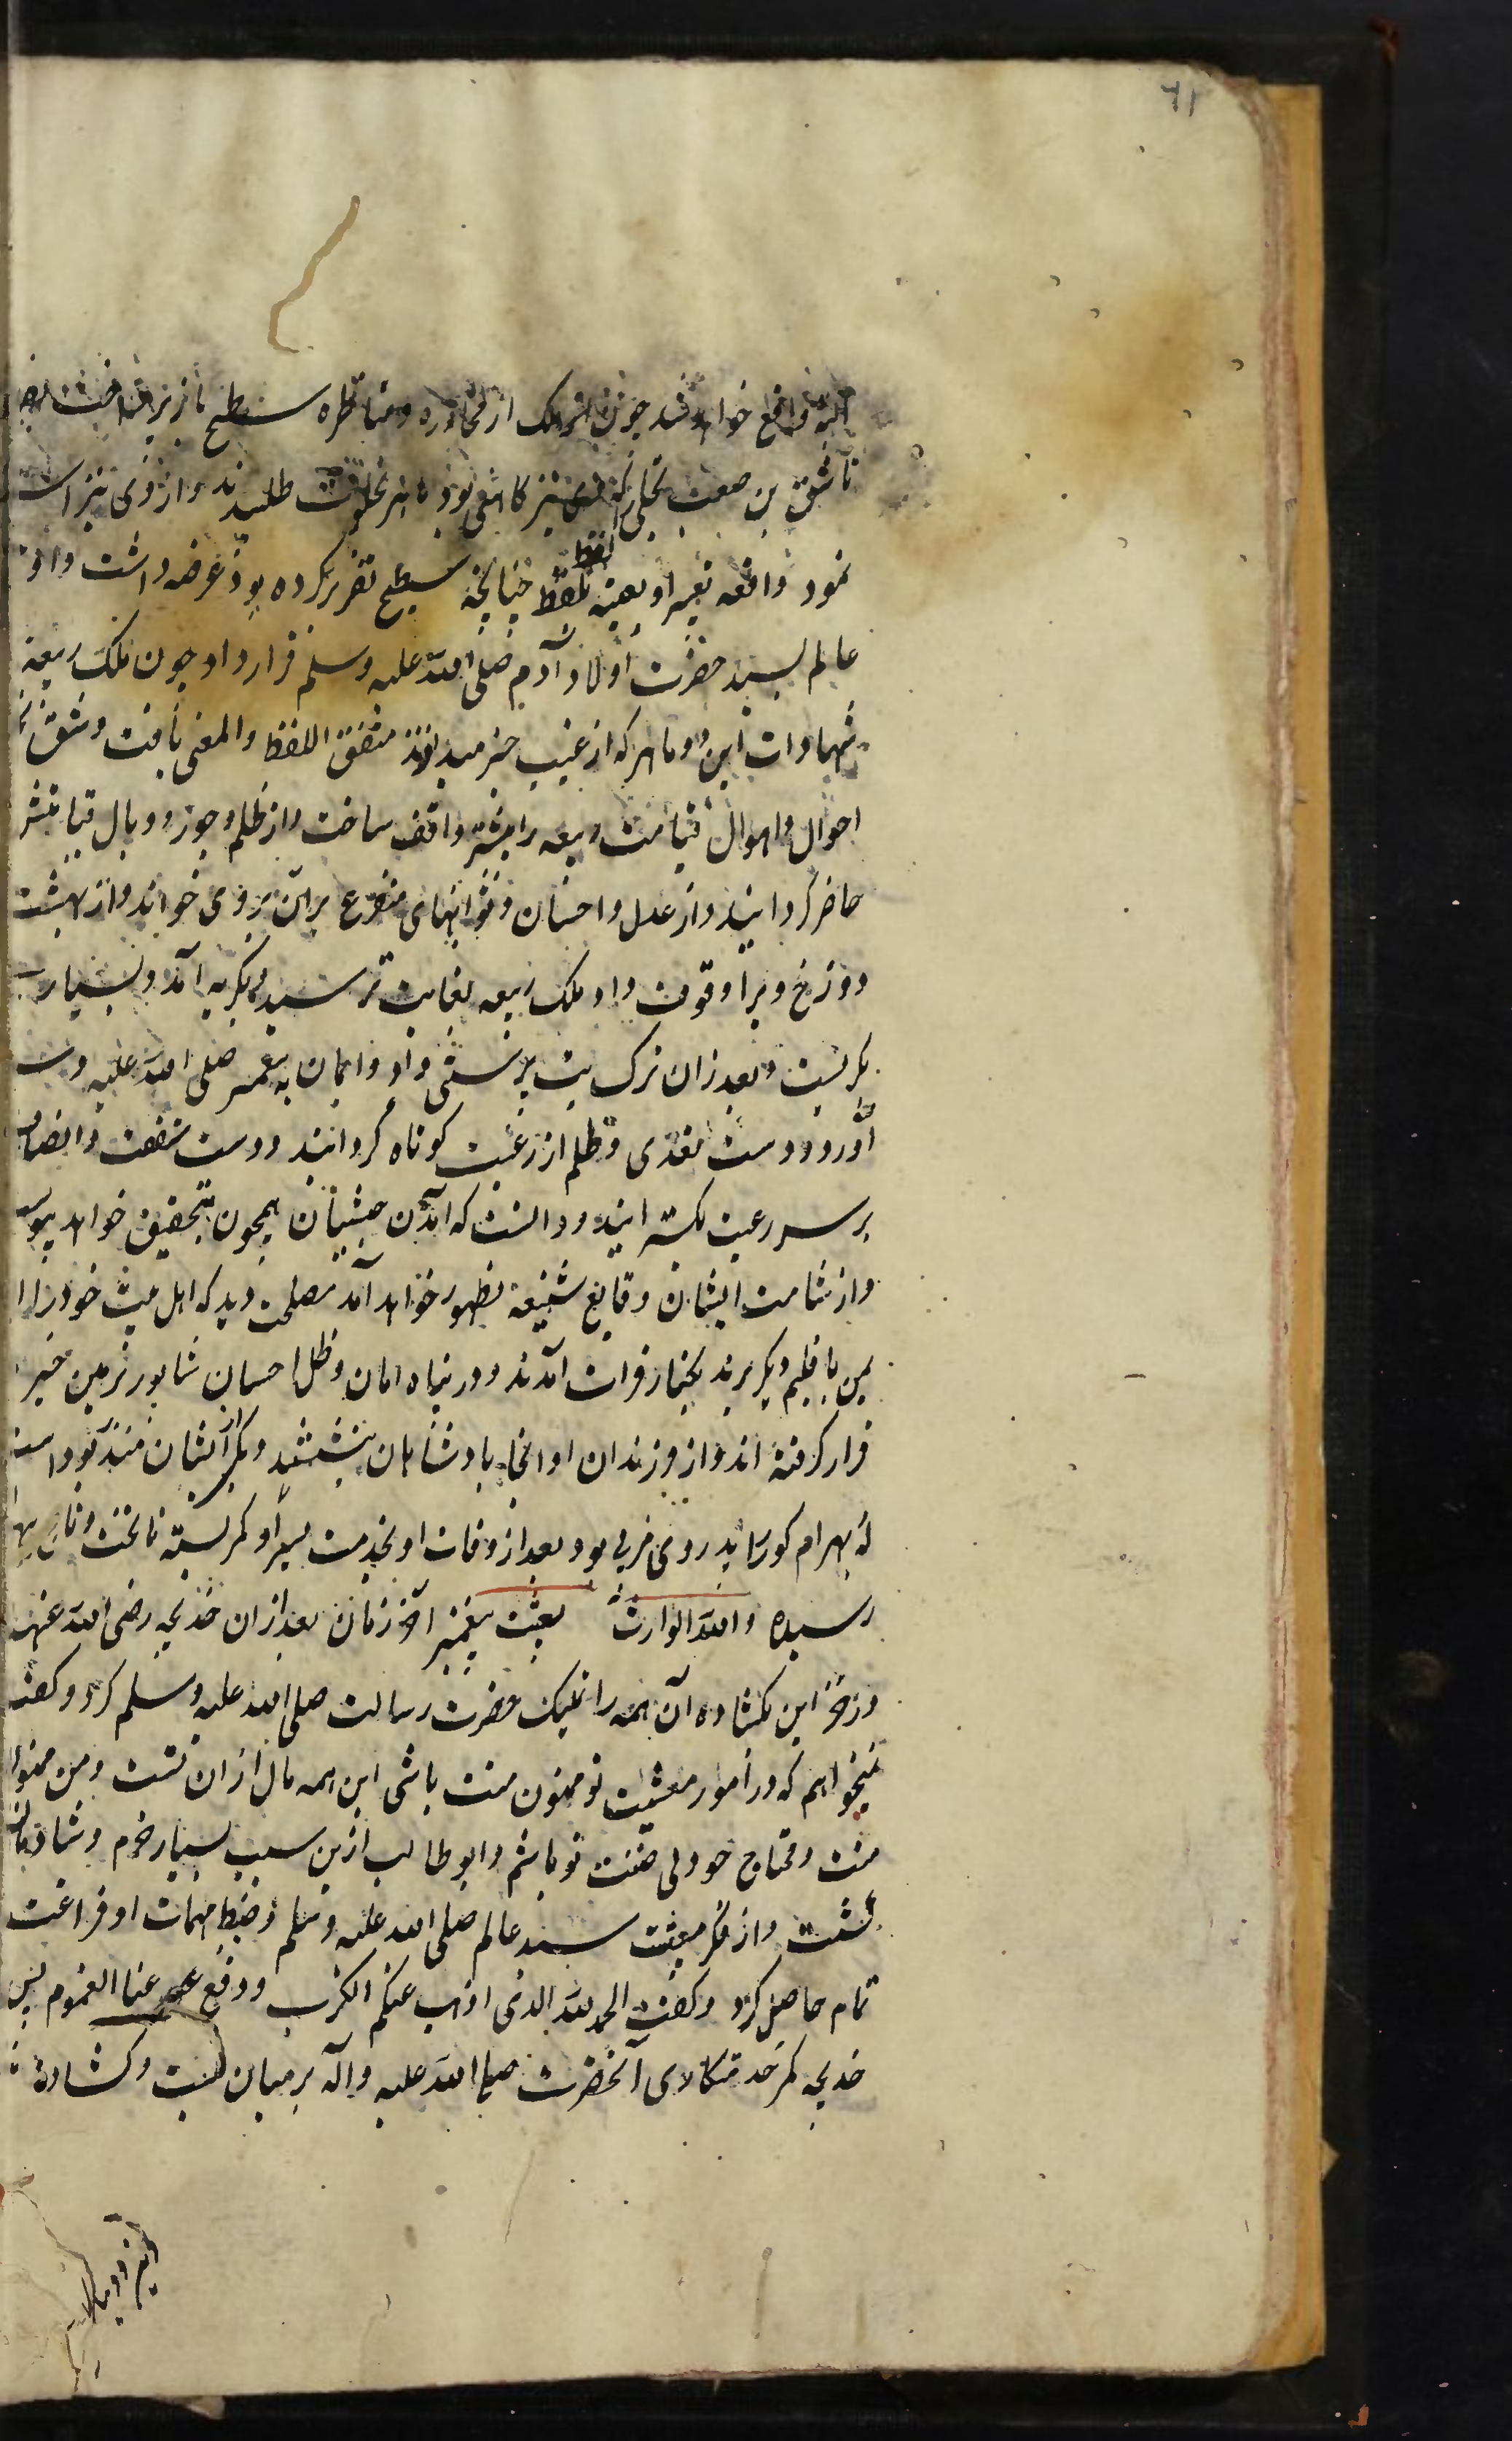 ٦١
البته واقع خواهد شد چون ملک از محاوره و مناظره سطیح باز پرداخت
تا شق بن صعب بجلی که وی نیز کاهنی بود ماهر بخلوت طلبیدند و از وی نیز
نمود واقعه تعبیر او بعینه لفظ بلفظ چنانچه سطیح تقریر کرده بود عرضه داشت و او
عالم بسید حضرت اولاد آدم صلی الله علیه وسلم قرار داد چون ملک ربیعه
شهادات این دو ماهر که از غیب خبر میدادند متفق اللفظ والمعنی یافت و شق
احوال و اهوال قیامت ربیعه را بیشتر واقف ساخت و از ظلم و جور و وبال
حاضر گردانید و از عدل و احسان و ثوابهای متفرع بر آن بر وی خواند و از بهشت
دوزخ ویرا وقوف داد ملک ربیعه بغایت ترسید و بگریه آمد و بسیار
بگریست و بعد از آن ترک بت پرستی داد و ایمان به پیغمبر صلی الله علیه و
آورد و دست تعدی و ظلم از رعیت کوتاه گردانید و دست شفقت و انصاف
بر سر رعیت بگسترانید و دانست که آمدن حبشیان همچون بتحقیق خواهد پیوست
و از شامت ایشان وقایع شنیعه بظهور خواهد آمد مصلحت دید که اهل بیت خود را از
یمن باقلیم دیگر برند بکنار فرات آمدند و در پناه امان و ظل احسان شاپور بزمین
قرار گرفته اند و از فرزندان او آنجا پادشاهان بنشستند و یکی از ایشان منذر بود است
که بهرام گور را پدر وی مربی بود بعد از وفات او بخدمت پسر او کمر بسته تا تخت و تاج
رسیده والله الوارث بعثت پیغمبر آخر زمان بعد از آن خدیجه رضی الله عنها
در خزاین بگشاده آن همه را تملیک حضرت رسالت صلی الله علیه وسلم کرد و گفت
نمیخواهم که در امور معیشت تو ممنون منت باشی این همه مال از آن تست و من ممنون
منت و محتاج تو باشم و ابو طالب ازین سبب بسیار خرم و شادمان
گشت و از فکر معیشت سید عالم صلی الله علیه وسلم و ضبط مهمات او فراغت
تمام حاصل کرد و گفت الحمد لله الذی اذهب عنکم الکرب و دفع عنا الغموم پس
خدیجه کمر خدمتکاری آنحضرت صلی الله علیه وآله بر میان بست و گشاده